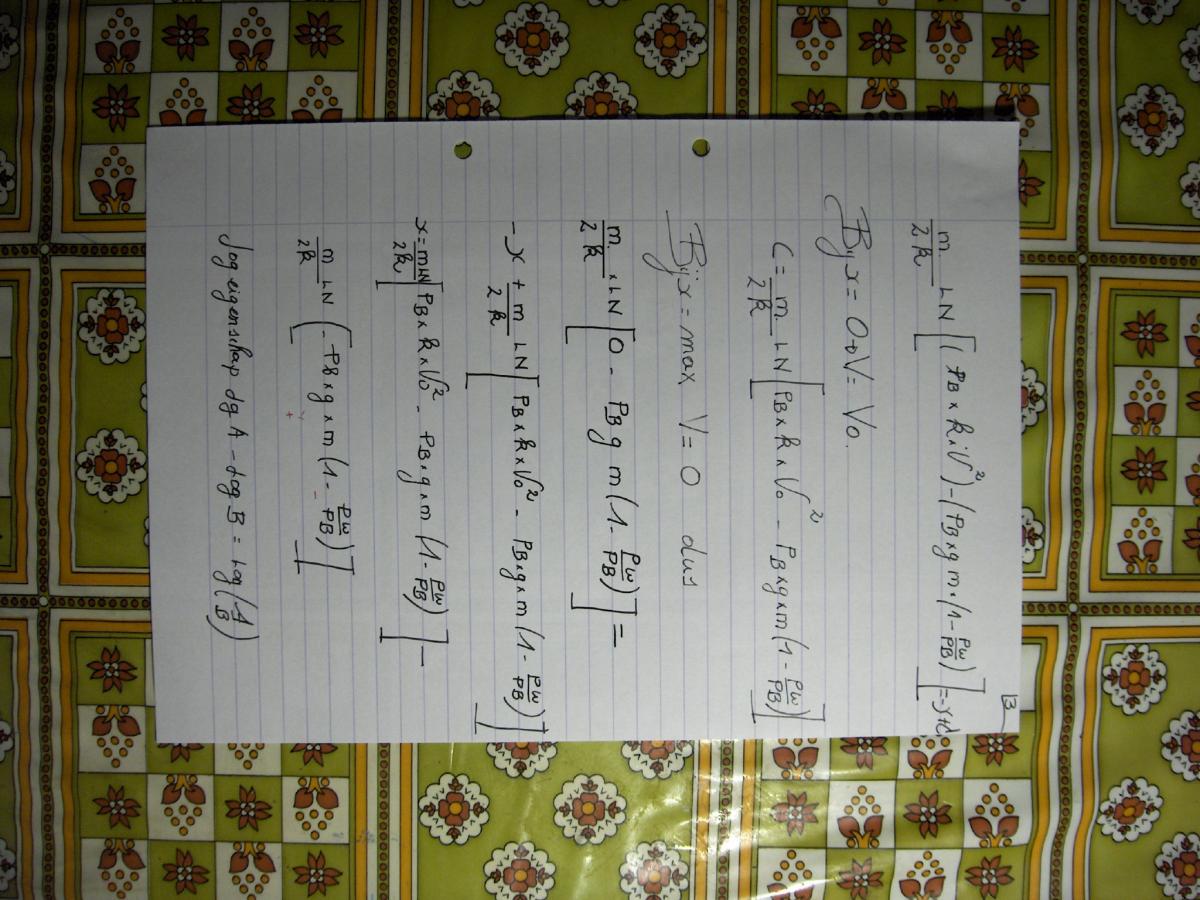 13
m/2k LN [(PB x k x V²) - (PB x g m · (1 - ρw/ρB)] = -x + d
Bij x = 0 → V = V0.
C = m/2k LN [PB x k x V0² - PB x g x m (1 - ρw/ρB)]
Bij x = max V = 0 dus
m/2k x LN [0 - PB g m (1 - ρw/ρB)] =
-x + m/2k LN [PB x k x V0² - PB x g x m (1 - ρw/ρB)]
x = m/2k LN [PB x k x V0² - PB x g x m (1 - ρw/ρB)] -
m/2k LN (- PB x g x m (1 - ρw/ρB)]
log eigenschap log A - log B = log (A/B)